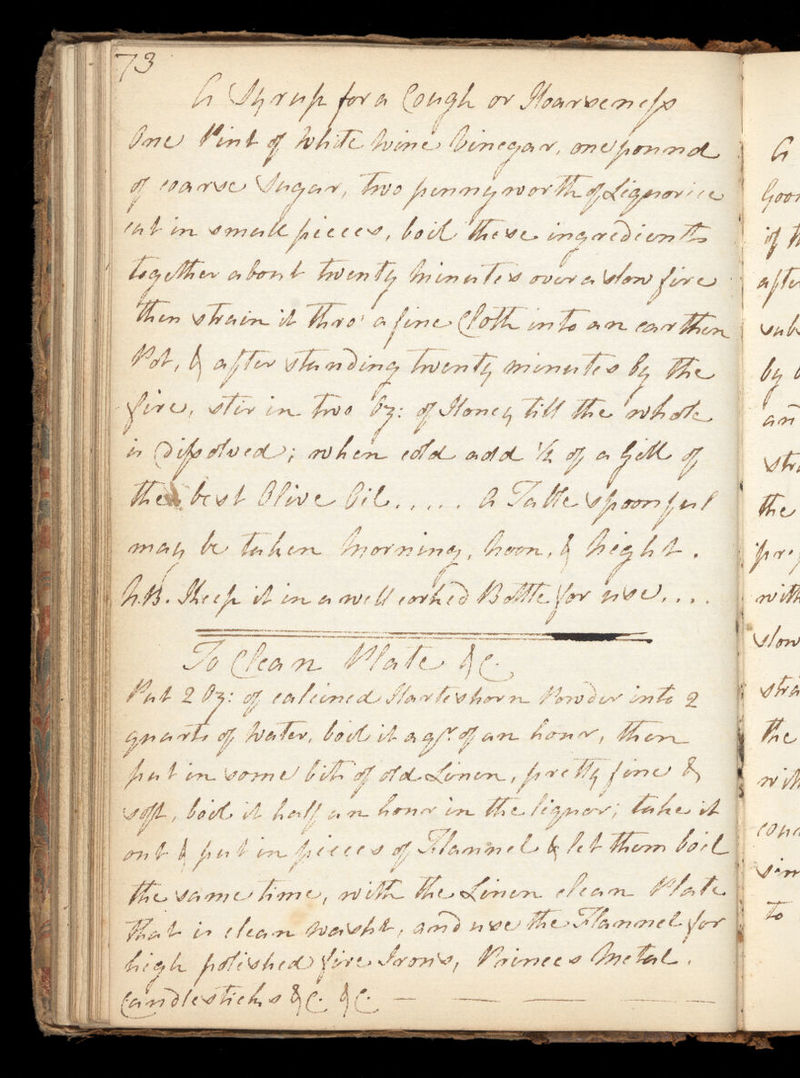 73
A Syrup for a Cough or Hoarseness
One Pint of White Wine Vinegar, one pound
of coarse Sugar, two pennyworth of Liquorice
cut in small pieces, boil these ingredients
together about twenty Minutes over a slow fire
then strain it thro' a fine Cloth into an earthen
Pot, & after standing twenty minutes by the
fire, stir in two Oz: of Honey till the whole
is Dissolved; when cold add 1/2 of a Gill of
the best Olive Oil..... A Table spoonful
may be taken Morning, Noon, & Night.
N.B. Keep it in a well corked Bottle for use....
To Clean Plate &c.
Put 2 Oz: of calcined Hartshorn Powder into 2
quarts of Water, boil it a qr. of an hour, then
put in some bits of old Linen, pretty fine &
soft, boil it half an hour in the liquor; take it
out & put in pieces of Flannel & let them boil
the same time, with the Linen clean Plate
that is clean washt, and use the Flannel for
high polished fire Irons, Princes Metal.
Candlesticks &c. &c. — — — —
A
Goo
if th
afte
sub
by
an
stra
the
pre
with
slow
stra
the
with
cou
sim
to